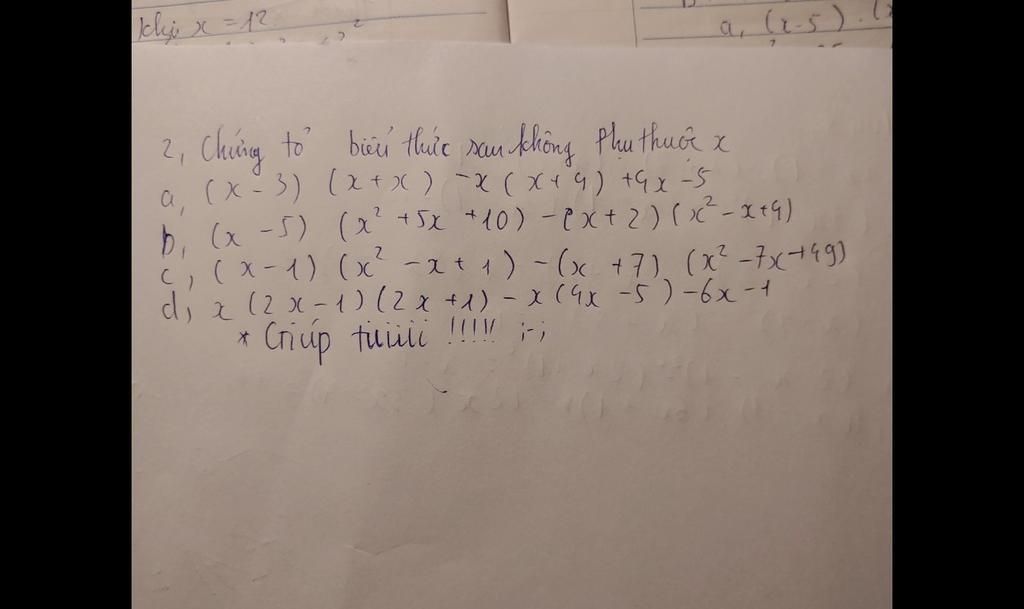 khi x = 12
a, (x-5).(x
2, Chứng tỏ biểu thức sau không phụ thuộc x
a, (x - 3) (x + x) - x (x + 4) + 4x - 5
b, (x - 5) (x² + 5x + 10) - (x + 2) (x² - x + 4)
c, (x - 1) (x² - x + 1) - (x + 7) (x² - 7x + 49)
d, x (2x - 1) (2x + 1) - x (4x - 5) - 6x - 1
* Giúp tuiiii !!!!! ;-;